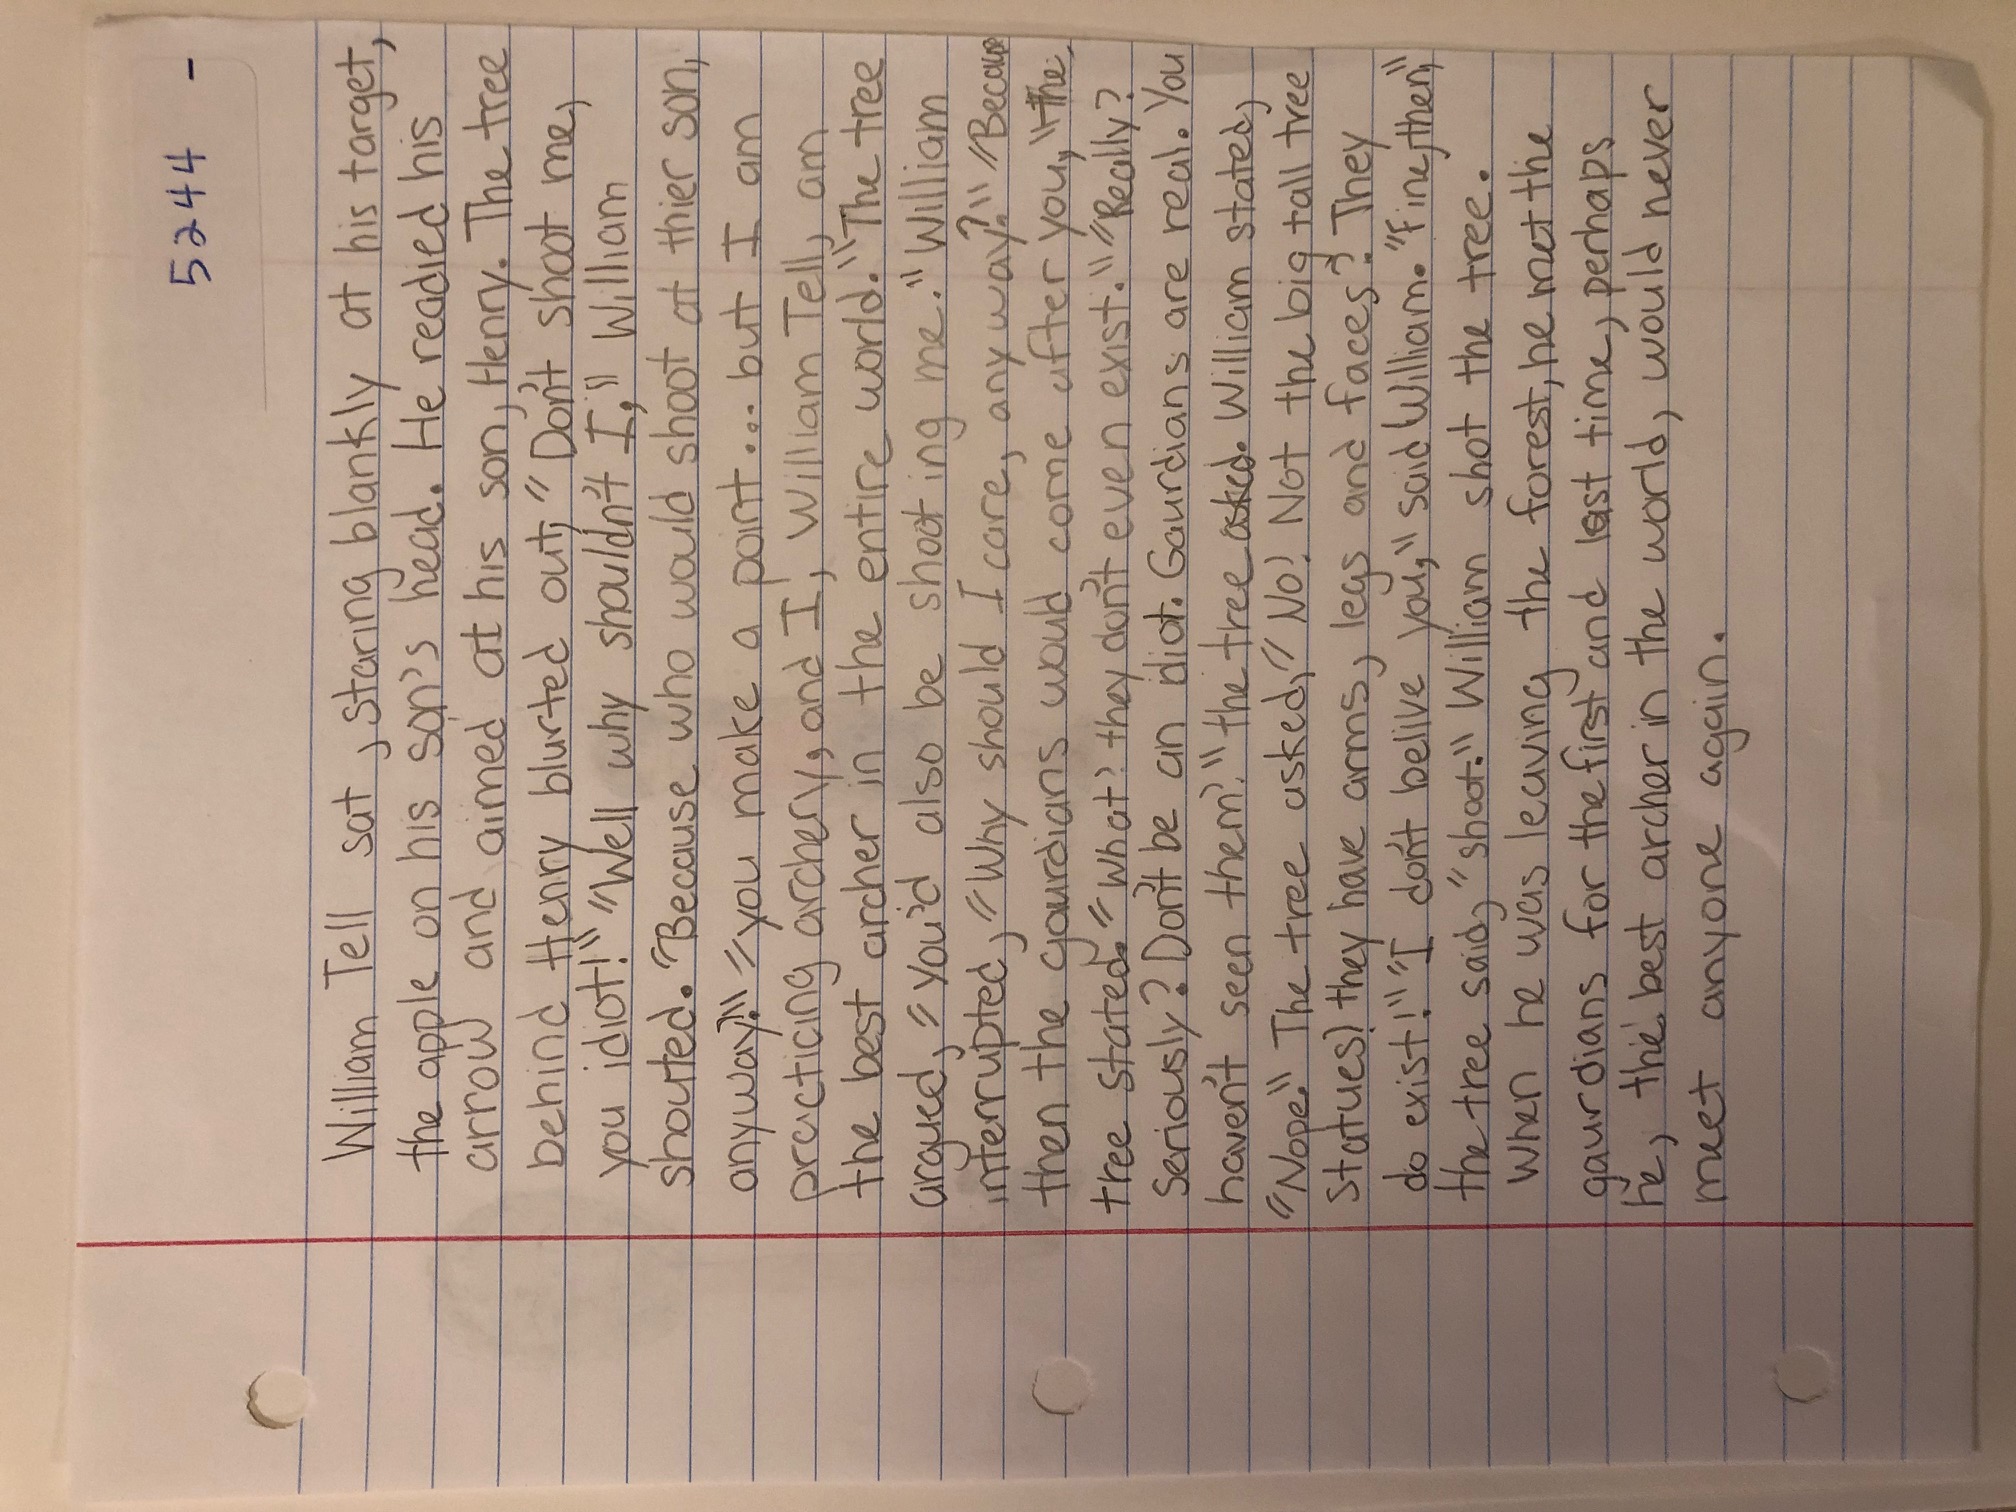 5244 -
William Tell sat, staring blankly at his target,
the apple on his son's head. He readied his
arrow and aimed at his son, Henry. The tree
behind Henry blurted out, "Don't shoot me,
you idiot!" "Well why shouldn't I," William
shouted. "Because who would shoot at thier son,
anyway?" "you make a point... but I am
practicing archery, and I, William Tell, am
the best archer in the entire world." The tree
argued, "you'd also be shooting me." William
interrupted, "Why should I care, any way?" "Because
then the gaurdians would come after you," the
tree stated. "What? they don't even exist." "Really?
Seriously? Don't be an idiot. Gaurdians are real. You
haven't seen them?" the tree asked. William stated,
"Nope." The tree asked, "No? Not the big tall tree
statues? they have arms, legs and faces? They
do exist!" "I don't belive you," said William. "Fine, then,"
the tree said, "shoot." William shot the tree.
When he was leaving the forest, he met the
gaurdians for the first and last time, perhaps
he, the best archer in the world, would never
meet anyone again.